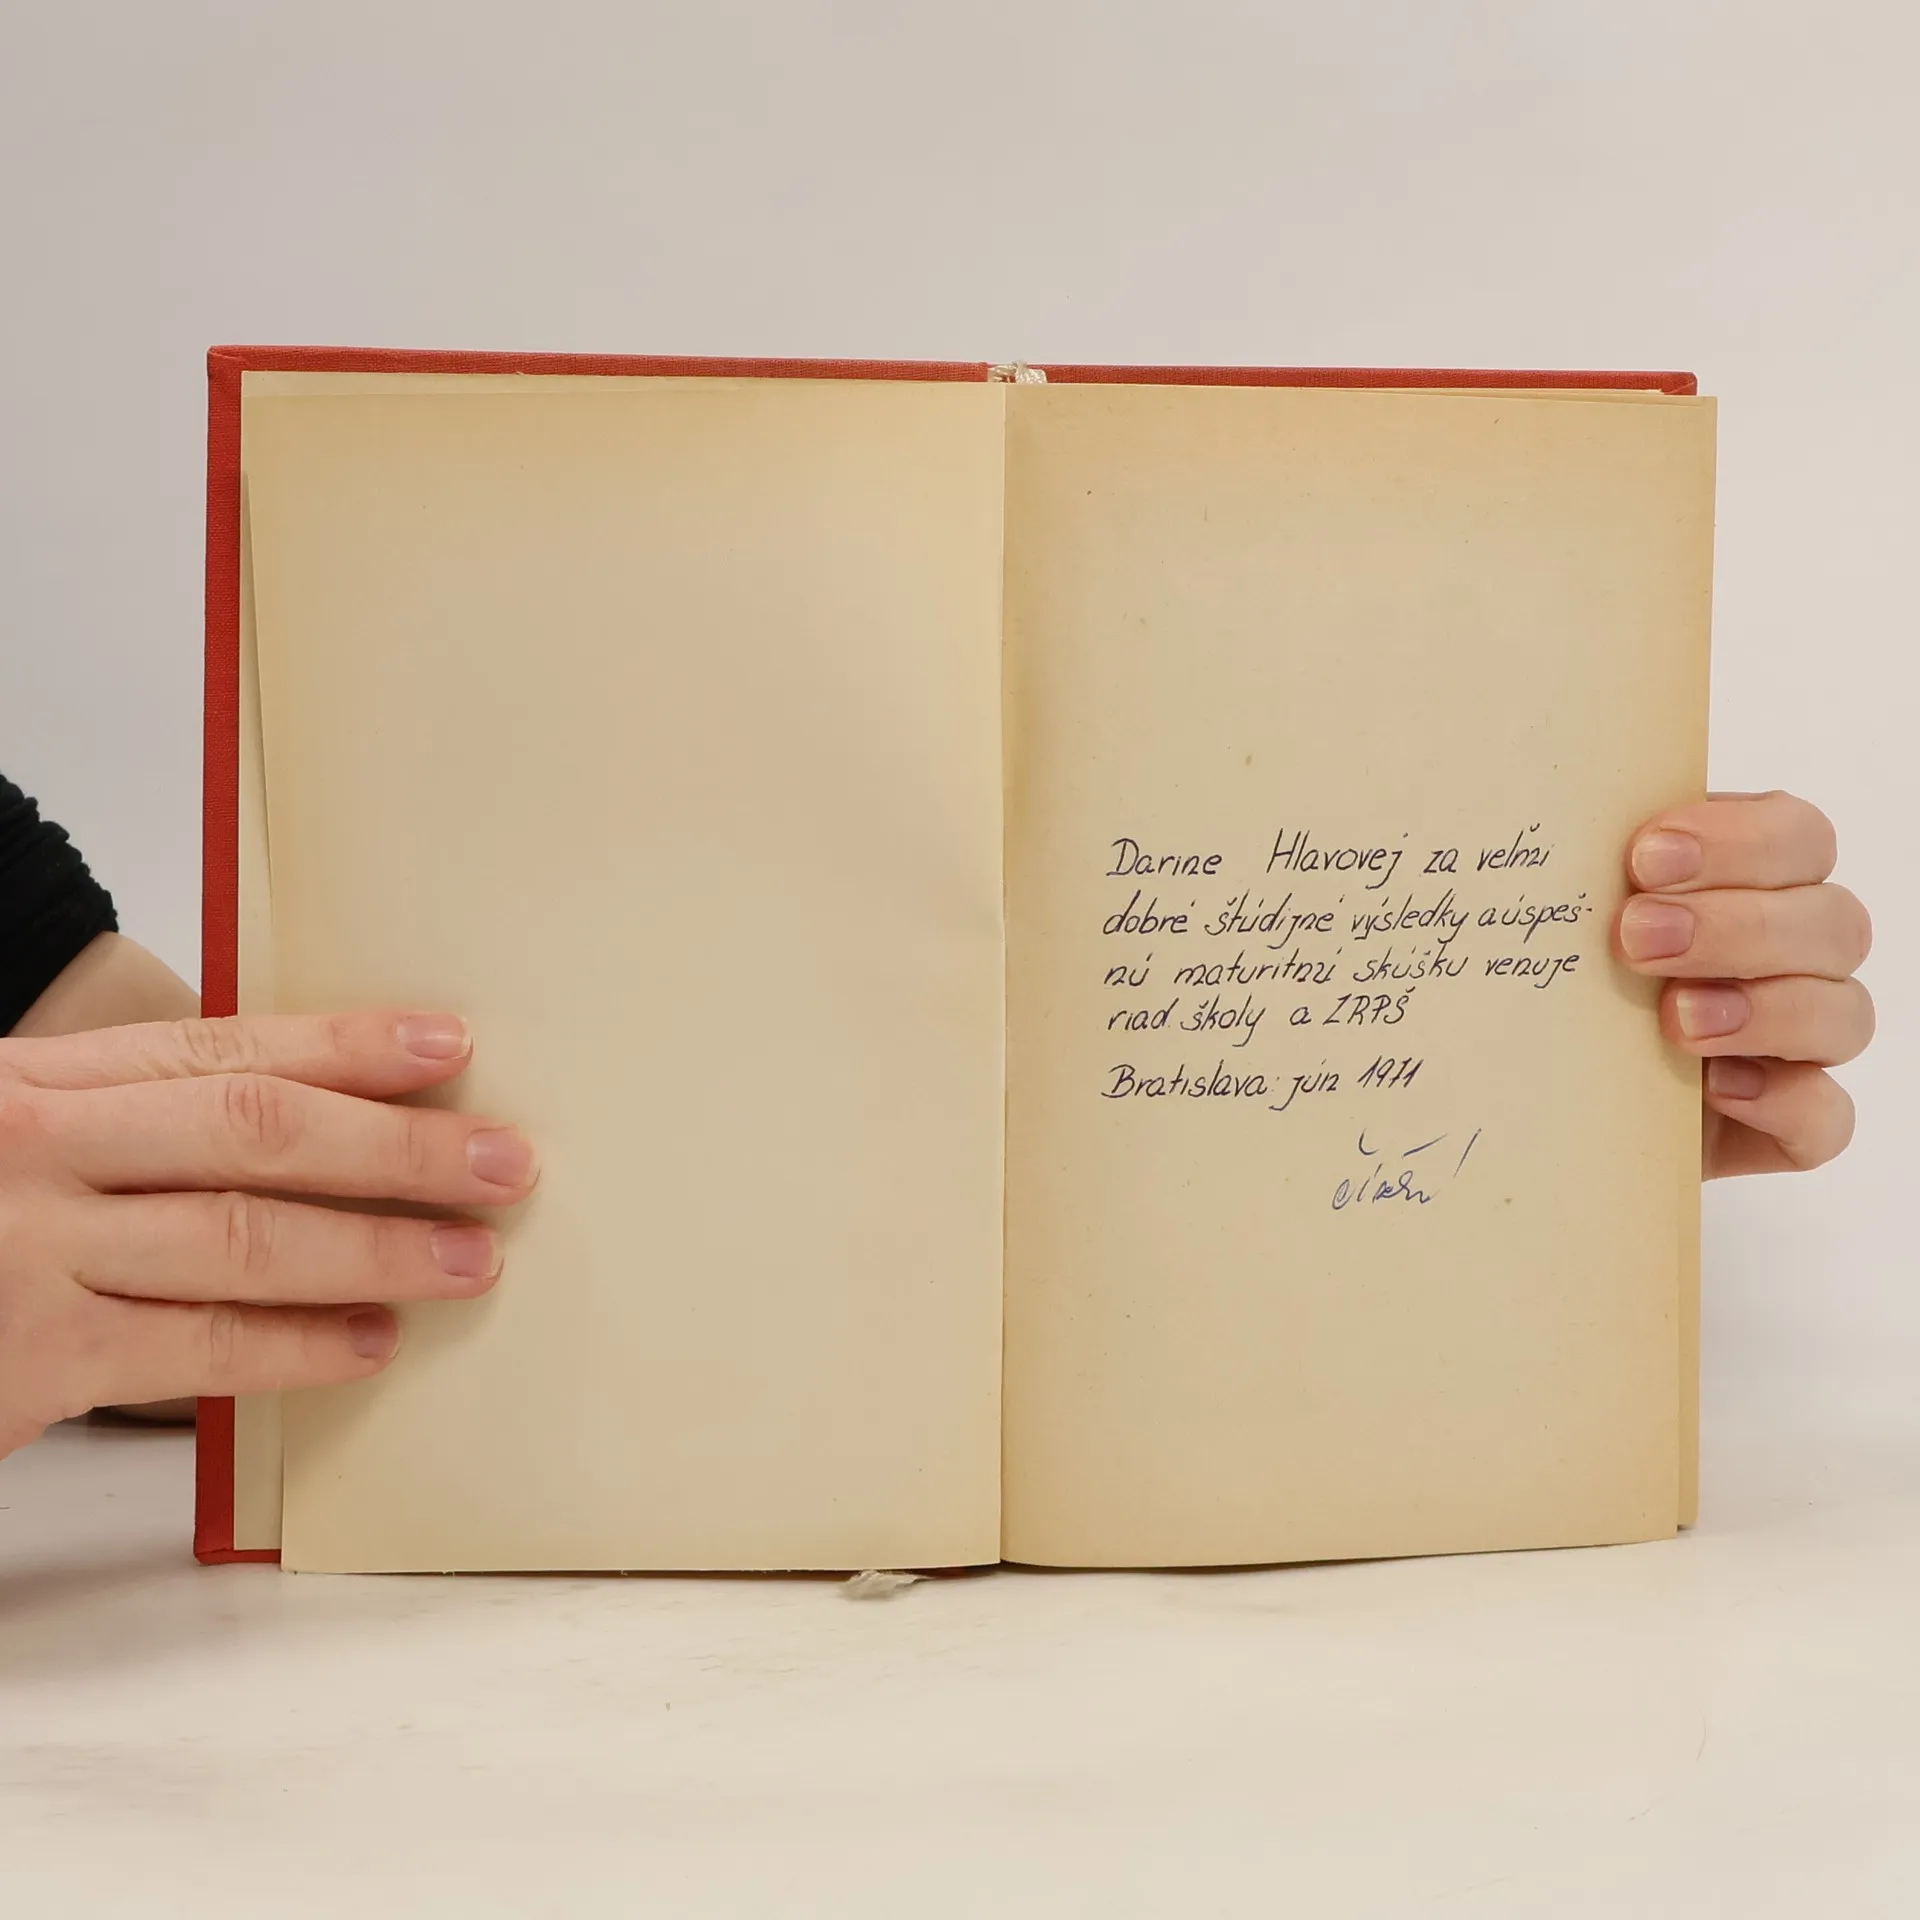 Darine Hlavovej za veľmi
dobré študijné výsledky a úspeš-
nú maturitnú skúšku venuje
riad. školy a ZRPŠ
Bratislava: jún 1971